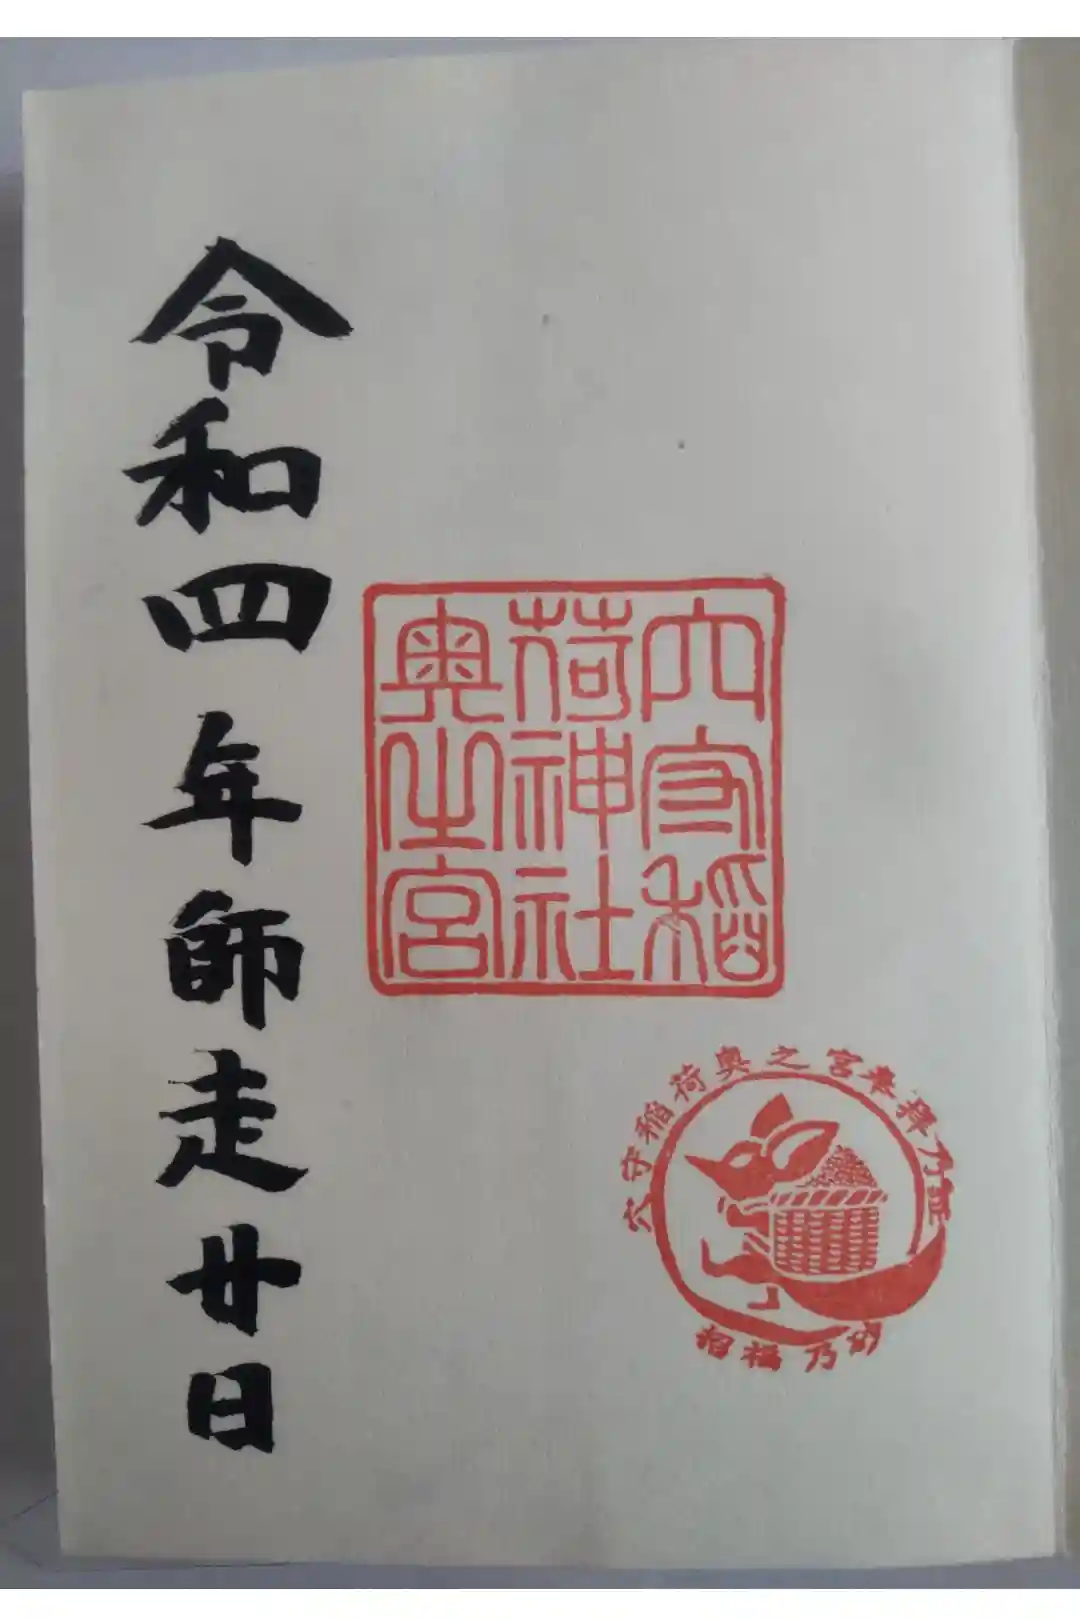 穴守稲
荷神社
奥之宮
穴守稲荷奥之宮奉拝乃証
招福乃砂
令和四年師走廿日